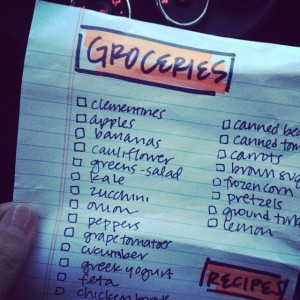 GROCERIES
clementines
apples
bananas
cauliflower
greens-salad
kale
zucchini
onion
peppers
grape tomatoes
cucumber
greek yogurt
feta
chicken
canned
canned
carrots
brown
frozen corn
pretzels
ground
lemon
RECIPES